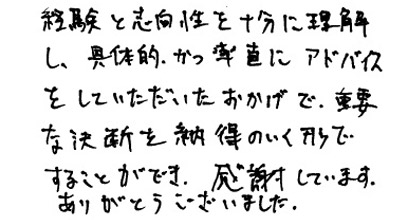 経験と志向性を十分に理解
し、具体的、かつ率直にアドバイス
をしていただいたおかげで、重要
な決断を納得のいく形で
することができ、感謝しています。
ありがとうございました。